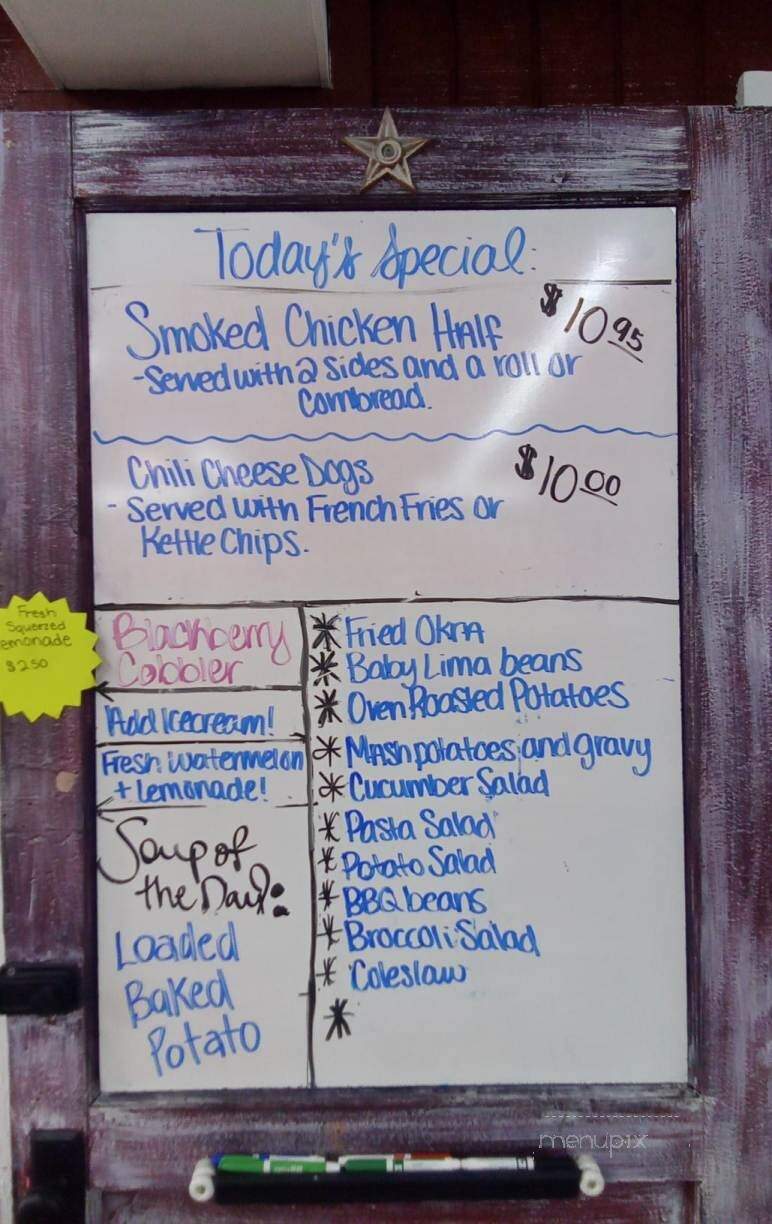 Today's Special:
Smoked Chicken Half
$10.95
-Served with 2 sides and a roll or
Cornbread.
Chili Cheese Dogs
$10.00
- Served with French Fries or
Kettle Chips.
Fresh
Squeezed
Lemonade
$2.50
Blackberry
Cobbler
Add Icecream!
Fresh Watermelon
+ Lemonade!
Soup of
the Day:
Loaded
Baked
Potato
* Fried Okra
* Baby Lima beans
* Oven Roasted Potatoes
* Mash potatoes and gravy
* Cucumber Salad
* Pasta Salad
* Potato Salad
* BBQ beans
* Broccoli Salad
* Coleslaw
*
menupix